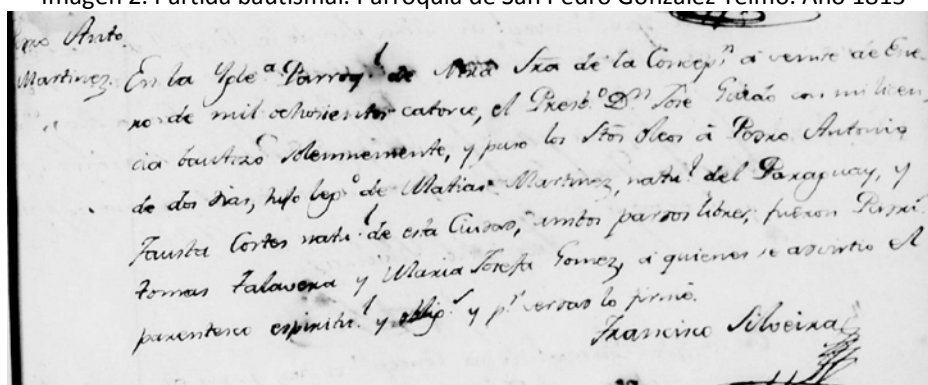 Imagen 2. Partida bautismal. Parroquia de San Pedro González Telmo. Año 1813
Pedro Anto.
Martinez. En la Ygleª Parroql de Ntrā Srā de la Concepn a veinte de Ene-
ro de mil ochocientos catorce, el Presbº Dn José Gadão con mi licen-
cia bautizó solemnemente, y puso los Stos oleos á Pedro Antonio
de dos dias, hijo legº de Matias Martinez, natul del Paraguay, y
Fausta Cortes natul de esta Ciudad, ambos pardos libres, fueron Padrs
Tomas Talavera y Maria Josefa Gomez, á quienes se advirtio el
parentesco espiritul y obligs y pr verdad lo firmé.
Francisco Silveira